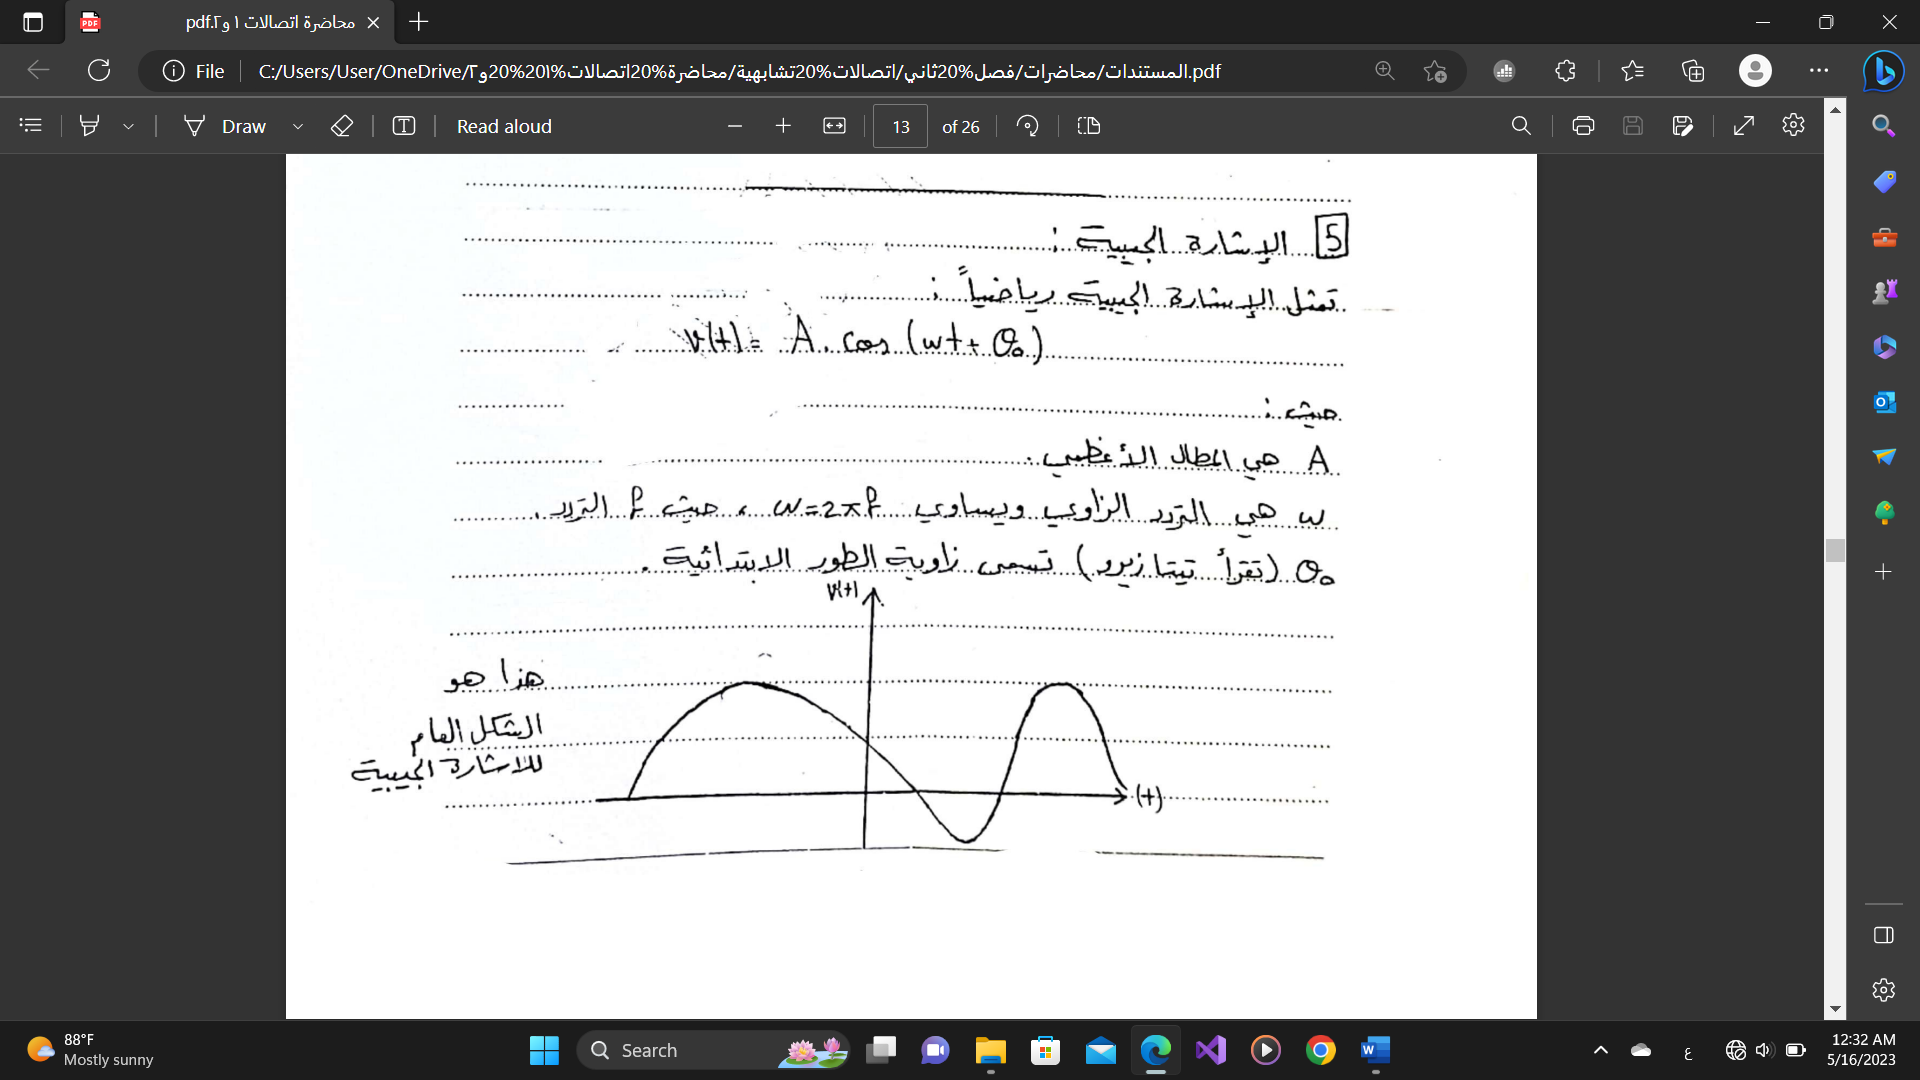 محاضرة اتصالات ١ و٢.pdf
File
C:/Users/User/OneDrive/المستندات/محاضرات/فصل%20ثاني/اتصالات%20تشابهية/محاضرة%20اتصالات%20١%20و٢.pdf
Draw
Read aloud
13
of 26
5 الإشارة الجيبية :
تمثل الإشارة الجيبية رياضياً :
v(t) = A . cos (ωt + θ₀)
حيث :
A هي المطال الأعظمي .
ω هي التردد الزاوي ويساوي ω=2πf ، حيث f التردد .
θ₀ (تقرأ تيتا زيرو) تسمى زاوية الطور الابتدائية .
v(t)
هذا هو
الشكل العام
للاشارة الجيبية
(t)
88°F
Mostly sunny
Search
ع
12:32 AM
5/16/2023